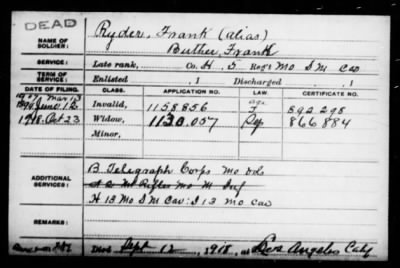 DEAD
NAME OF SOLDIER: Ryder, Frank (alias)
Buther, Frank
SERVICE: Late rank, Co. H. 5 Reg't Mo S M Cav
TERM OF SERVICE: Enlisted , 1 Discharged , 1
DATE OF FILING. CLASS. APPLICATION NO. LAW. CERTIFICATE NO.
June 12 Invalid, 1158856 892298
1918. Oct 23 Widow, 1130.057 866884
Minor,
ADDITIONAL SERVICES: B. Telegraph Corps Mo Vols
Mo M Inf
H 13 Mo S M Cav: I 13 Mo Cav
REMARKS:
Died Sept 12, 1918, at Los Angeles Calif